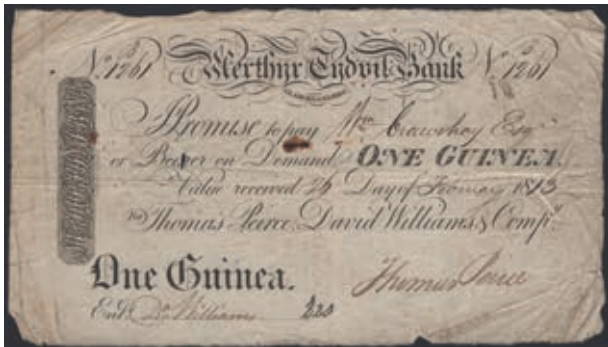 No. 1261 Merthyr Tydvil Bank No. 1261
I Promise to pay Wm Crawshay Esqr
or Bearer on Demand ONE GUINEA.
Value received 26 Day of February 1813
For Thomas Peirce, David Williams & Compy.
One Guinea. Thomas Peirce
Entd. Dd. Williams